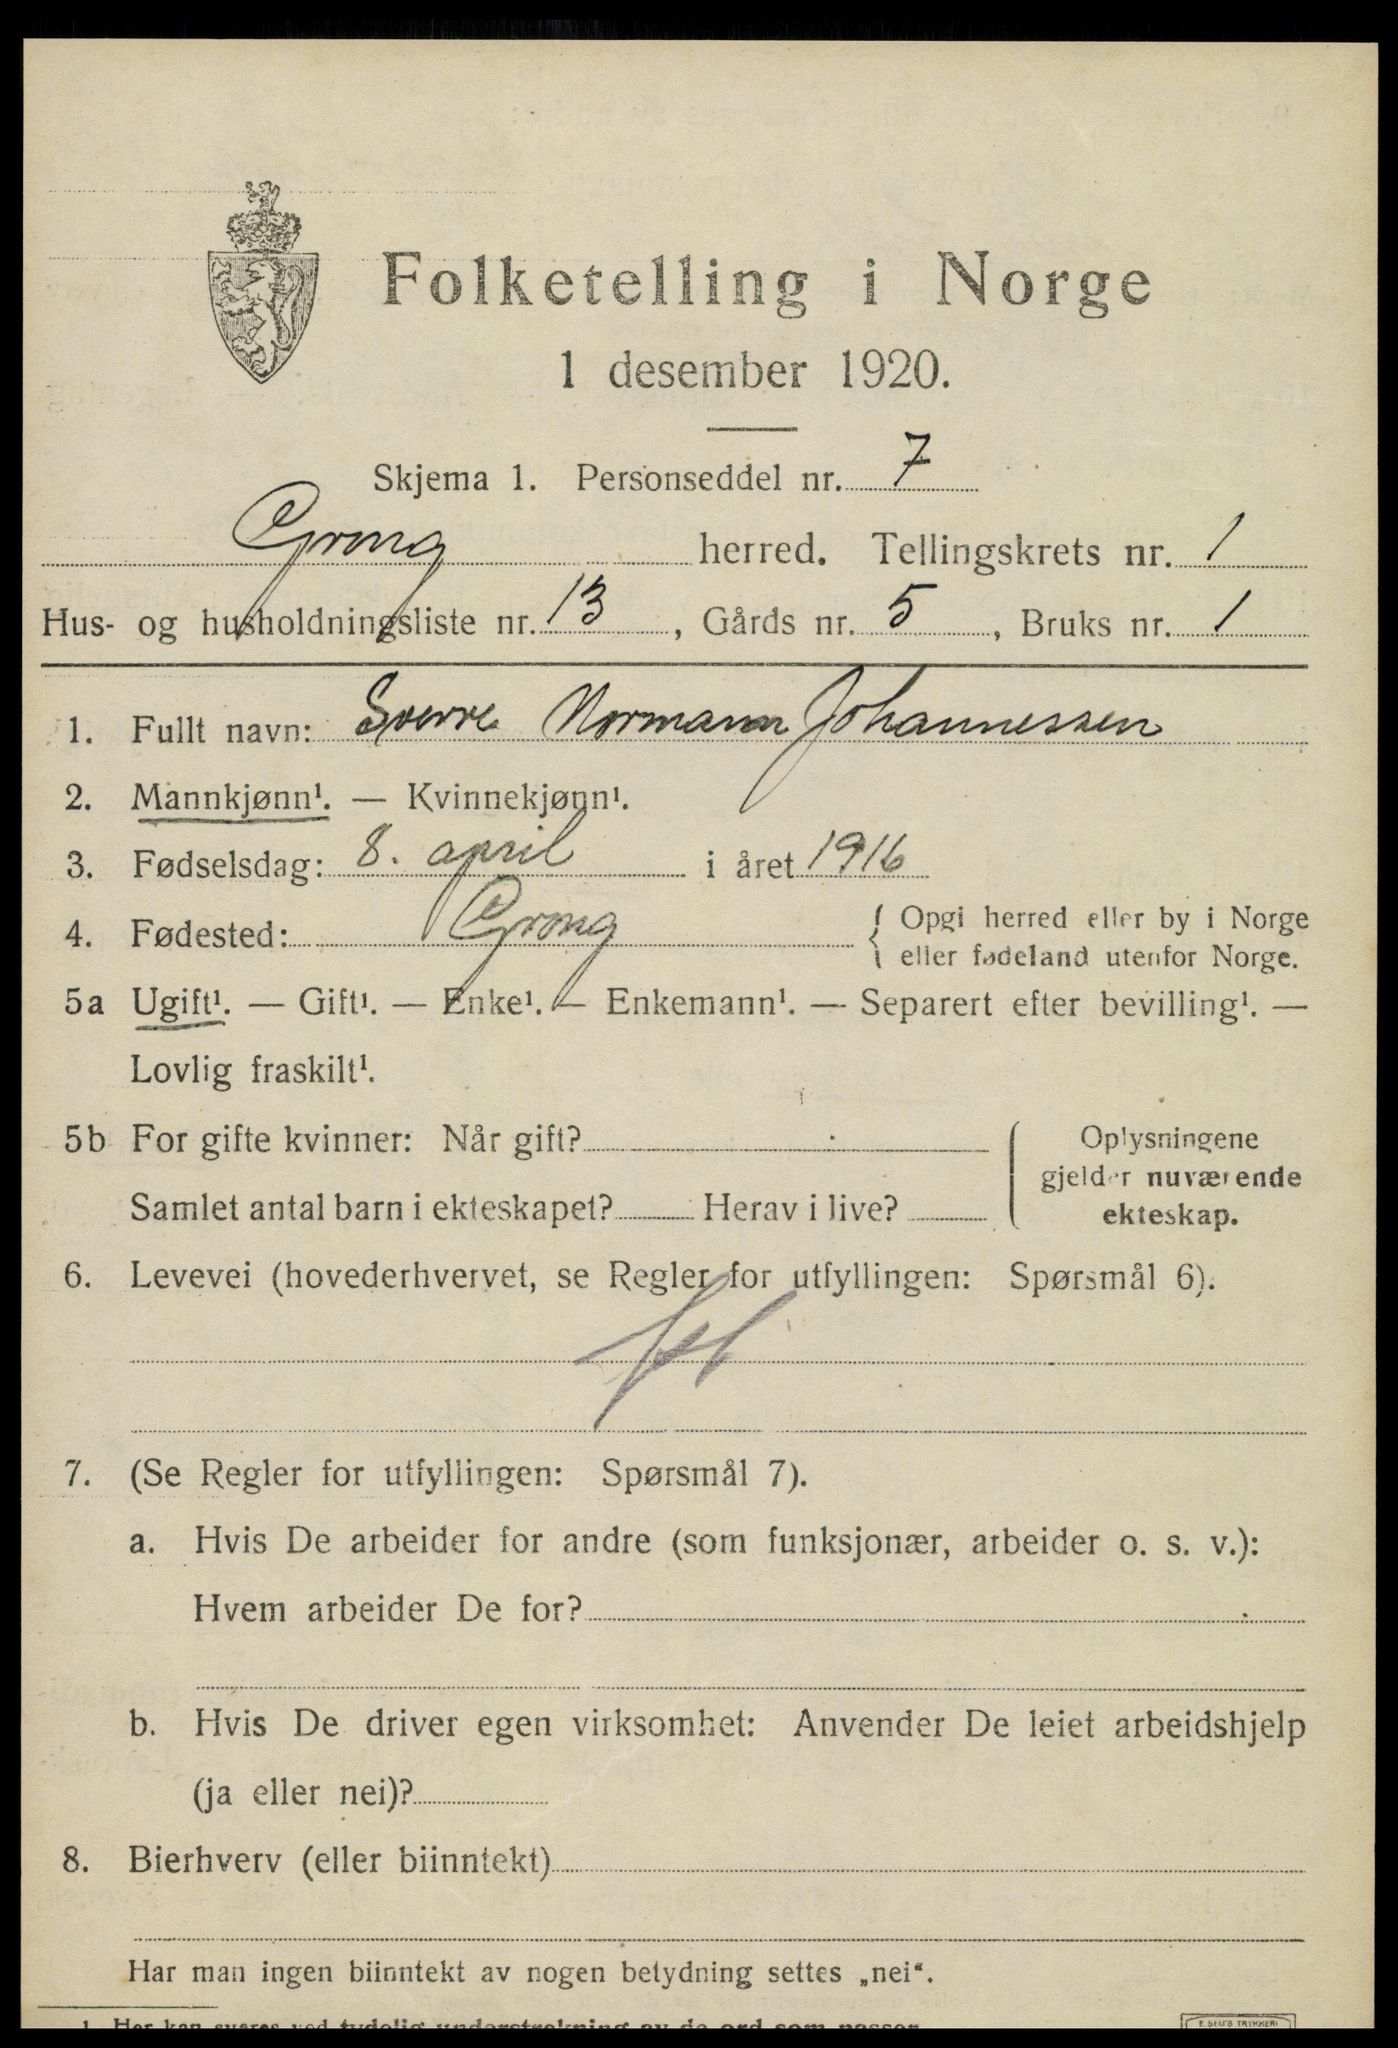 Folketelling i Norge
1 desember 1920.
Skjema 1. Personseddel nr. 7
Grong herred. Tellingskrets nr. 1
Hus- og husholdningsliste nr. 13, Gårds nr. 5, Bruks nr. 1
1. Fullt navn: Sverre Normann Johannessen
2. Mannkjønn¹. — Kvinnekjønn¹.
3. Fødselsdag: 8. april i året 1916
4. Fødested: Grong { Opgi herred eller by i Norge
eller fødeland utenfor Norge.
5a Ugift¹. — Gift¹. — Enke¹. — Enkemann¹. — Separert efter bevilling¹. —
Lovlig fraskilt¹.
5b For gifte kvinner: Når gift?
Samlet antal barn i ekteskapet? Herav i live?
Oplysningene
gjelder nuværende
ekteskap.
6. Levevei (hovederhvervet, se Regler for utfyllingen: Spørsmål 6).
7. (Se Regler for utfyllingen: Spørsmål 7).
a. Hvis De arbeider for andre (som funksjonær, arbeider o. s. v.):
Hvem arbeider De for?
b. Hvis De driver egen virksomhet: Anvender De leiet arbeidshjelp
(ja eller nei)?
8. Bierhverv (eller biinntekt)
Har man ingen biinntekt av nogen betydning settes „nei“.
1. Her kan svares ved tydelig understrekning av de ord som passer.